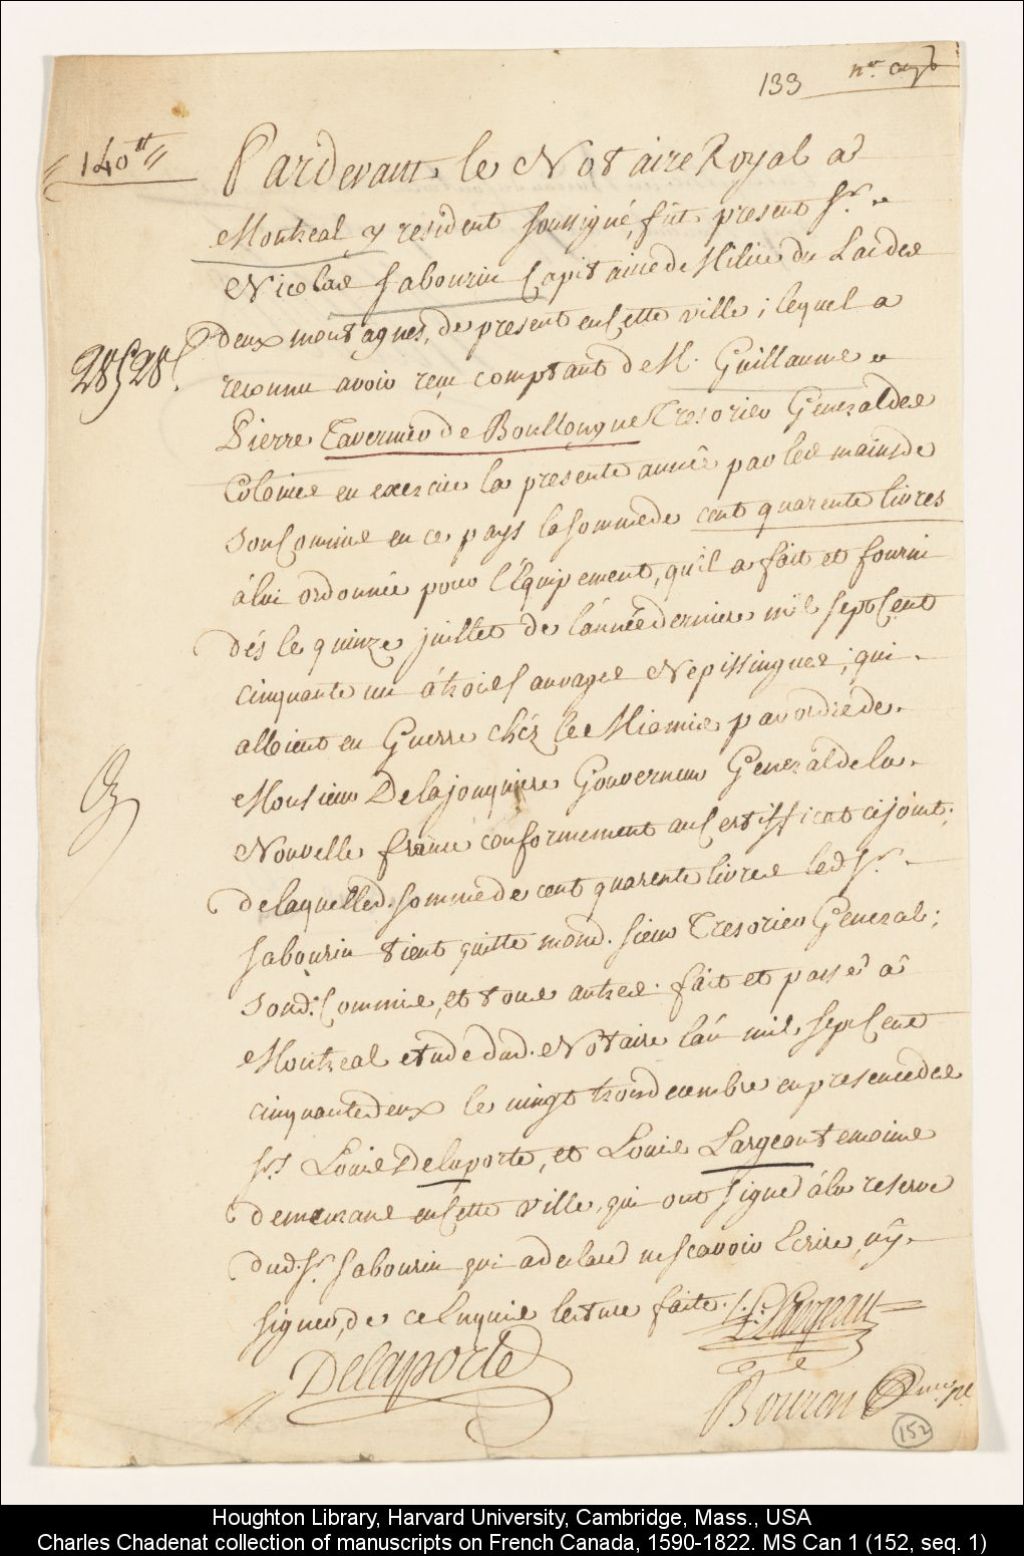 133
"140"
Pardevant le Notaire Royal a
Montreal y resident soussigné, fut present Sr.
Nicolas Sabourin Capitaine de Milice du Lac des
deux montagnes, de present en Cette ville; lequel a
reconnu avoir reçu comptant de M. Guillaume
Pierre Tavernier de Boullongne Tresorier General des
Colonies en exercice la presente année par les mains de
son Commis en ce pays la somme de cent quarente livres
à lui ordonnée pour l'Équipement, qu'il a fait et fourni
dès le quinze juillet de l'année derniere mil sept Cent
cinquante un à trois Sauvages Nepissingues; qui
alloient en Guerre chéz les Miamis par ordre de
Monsieur De la jonquiere Gouverneur General de la
Nouvelle france conformement au Certifficat cijoint;
de laquelle d. somme de cent quarente livres led. Sr.
Sabourin tient quitte mond. sieur Tresorier General;
sond. Commis, et tous autres. fait et passé à
Montreal etude dud. Notaire l'an mil sept Cent
cinquante deux le vingt trois decembre en presence des
Srs. Louis Delaporte, et Louis Largeau temoins
demeurans en Cette ville, qui ont signé à la reserve
dud. Sr. Sabourin qui a declaré ne scavoir Ecrire, ny
signer, de ce Enquis lecture faite.
L. Largeau
Delaporte
Bouron
152
Houghton Library, Harvard University, Cambridge, Mass., USA
Charles Chadenat collection of manuscripts on French Canada, 1590-1822. MS Can 1 (152, seq. 1)